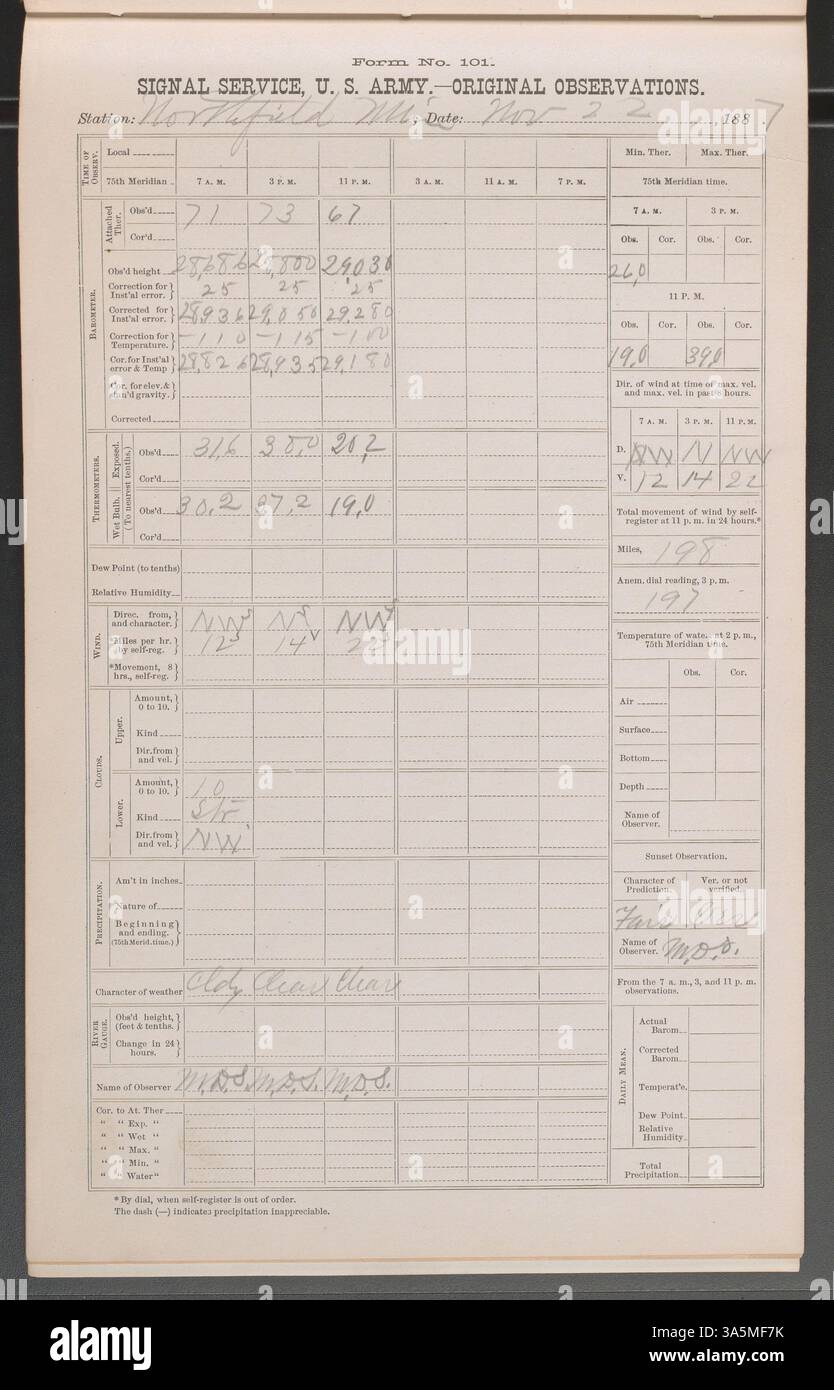 Form No. 101.
SIGNAL SERVICE, U. S. ARMY.—ORIGINAL OBSERVATIONS.
Station: Northfield Min, Date: Nov 22, 1887
TIME OF OBSERV.
Local
75th Meridian 7 A. M. 3 P. M. 11 P. M. 3 A. M. 11 A. M. 7 P. M.
BAROMETER.
Attached Ther.
Obs'd 71 73 67
Cor'd.
Obs'd height 28,686 28,800 29,030
Correction for Inst'al error. 25 25 25
Corrected for Inst'al error. 28936 29,050 29,280
Correction for Temperature. -110 -115 -100
Cor. for Inst'al error & Temp 28,826 28,935 29,180
Cor. for elev. & stan'd gravity.
Corrected
THERMOMETERS.
Exposed.
Wet Bulb.
(To nearest tenths.)
Obs'd 31,6 38,0 20,2
Cor'd
Obs'd 30,2 37,2 19,0
Cor'd.
Dew Point (to tenths)
Relative Humidity
WIND.
Direc. from, and character. NW S N S NW
*Miles per hr. by self-reg. 12 14 22
*Movement, 8 hrs., self-reg.
CLOUDS.
Upper.
Amount, 0 to 10.
Kind
Dir. from and vel.
Lower.
Amount, 0 to 10. 10
Kind Str
Dir. from and vel. NW
PRECIPITATION.
Am't in inches
Nature of
Beginning and ending.
(75th Merid. time.)
Character of weather Cldy Clear Clear
RIVER GAUGE.
Obs'd height, (feet & tenths.)
Change in 24 hours.
Name of Observer M.D.S. M.D.S. M.D.S.
Cor. to At. Ther
" " Exp. "
" " Wet "
" " Max. "
" " Min. "
" " Water "
*By dial, when self-register is out of order.
The dash (—) indicates precipitation inappreciable.
Min. Ther. Max. Ther.
75th Meridian time.
7 A. M. 3 P. M.
Obs. Cor. Obs. Cor.
26,0
11 P. M.
Obs. Cor. Obs. Cor.
19,0 39,0
Dir. of wind at time of max. vel. and max. vel. in past 8 hours.
7 A. M. 3 P. M. 11 P. M.
D. NW N NW
V. 12 14 22
Total movement of wind by self-register at 11 p. m. in 24 hours.*
Miles, 198
Anem. dial reading, 3 p. m.
197
Temperature of water at 2 p. m., 75th Meridian time.
Obs. Cor.
Air
Surface
Bottom
Depth
Name of Observer.
Sunset Observation.
Character of Prediction. Ver. or not verified.
Fair
Name of Observer. M.D.S.
From the 7 a. m., 3, and 11 p. m. observations.
DAILY MEAN.
Actual Barom.
Corrected Barom.
Temperat'e.
Dew Point
Relative Humidity.
Total Precipitation
alamy
Image ID: 3A5MF7K
www.alamy.com